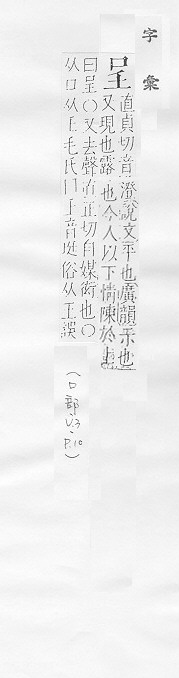 字彙
呈 直貞切音澄說文平也廣韻示也
又現也露也今人以下情陳於上
曰呈〇又去聲直正切自媒衒也〇
从口从𡈼毛氏曰𡈼音挺俗从王誤
(口部·V.3·P.10)